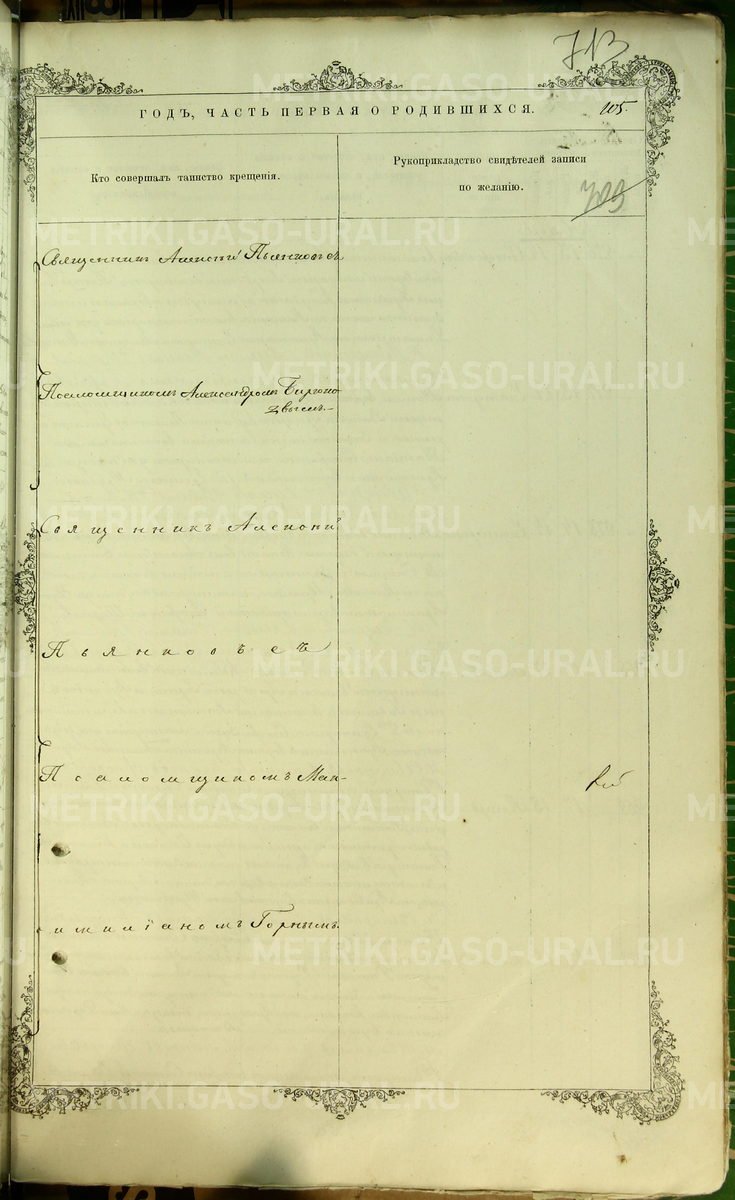 713
ГОДЪ, ЧАСТЬ ПЕРВАЯ О РОДИВШИХСЯ.
105.
Кто совершалъ таинство крещенія.
Рукоприкладство свидѣтелей записи
по желанію.
Священникъ Алексій Пьянковъ съ
Псаломщикомъ Александромъ
Священникъ Алексій
Пьянковъ съ
Псаломщикомъ Мак-
симиліаномъ Горнымъ.
METRIKI.GASO-URAL.RU